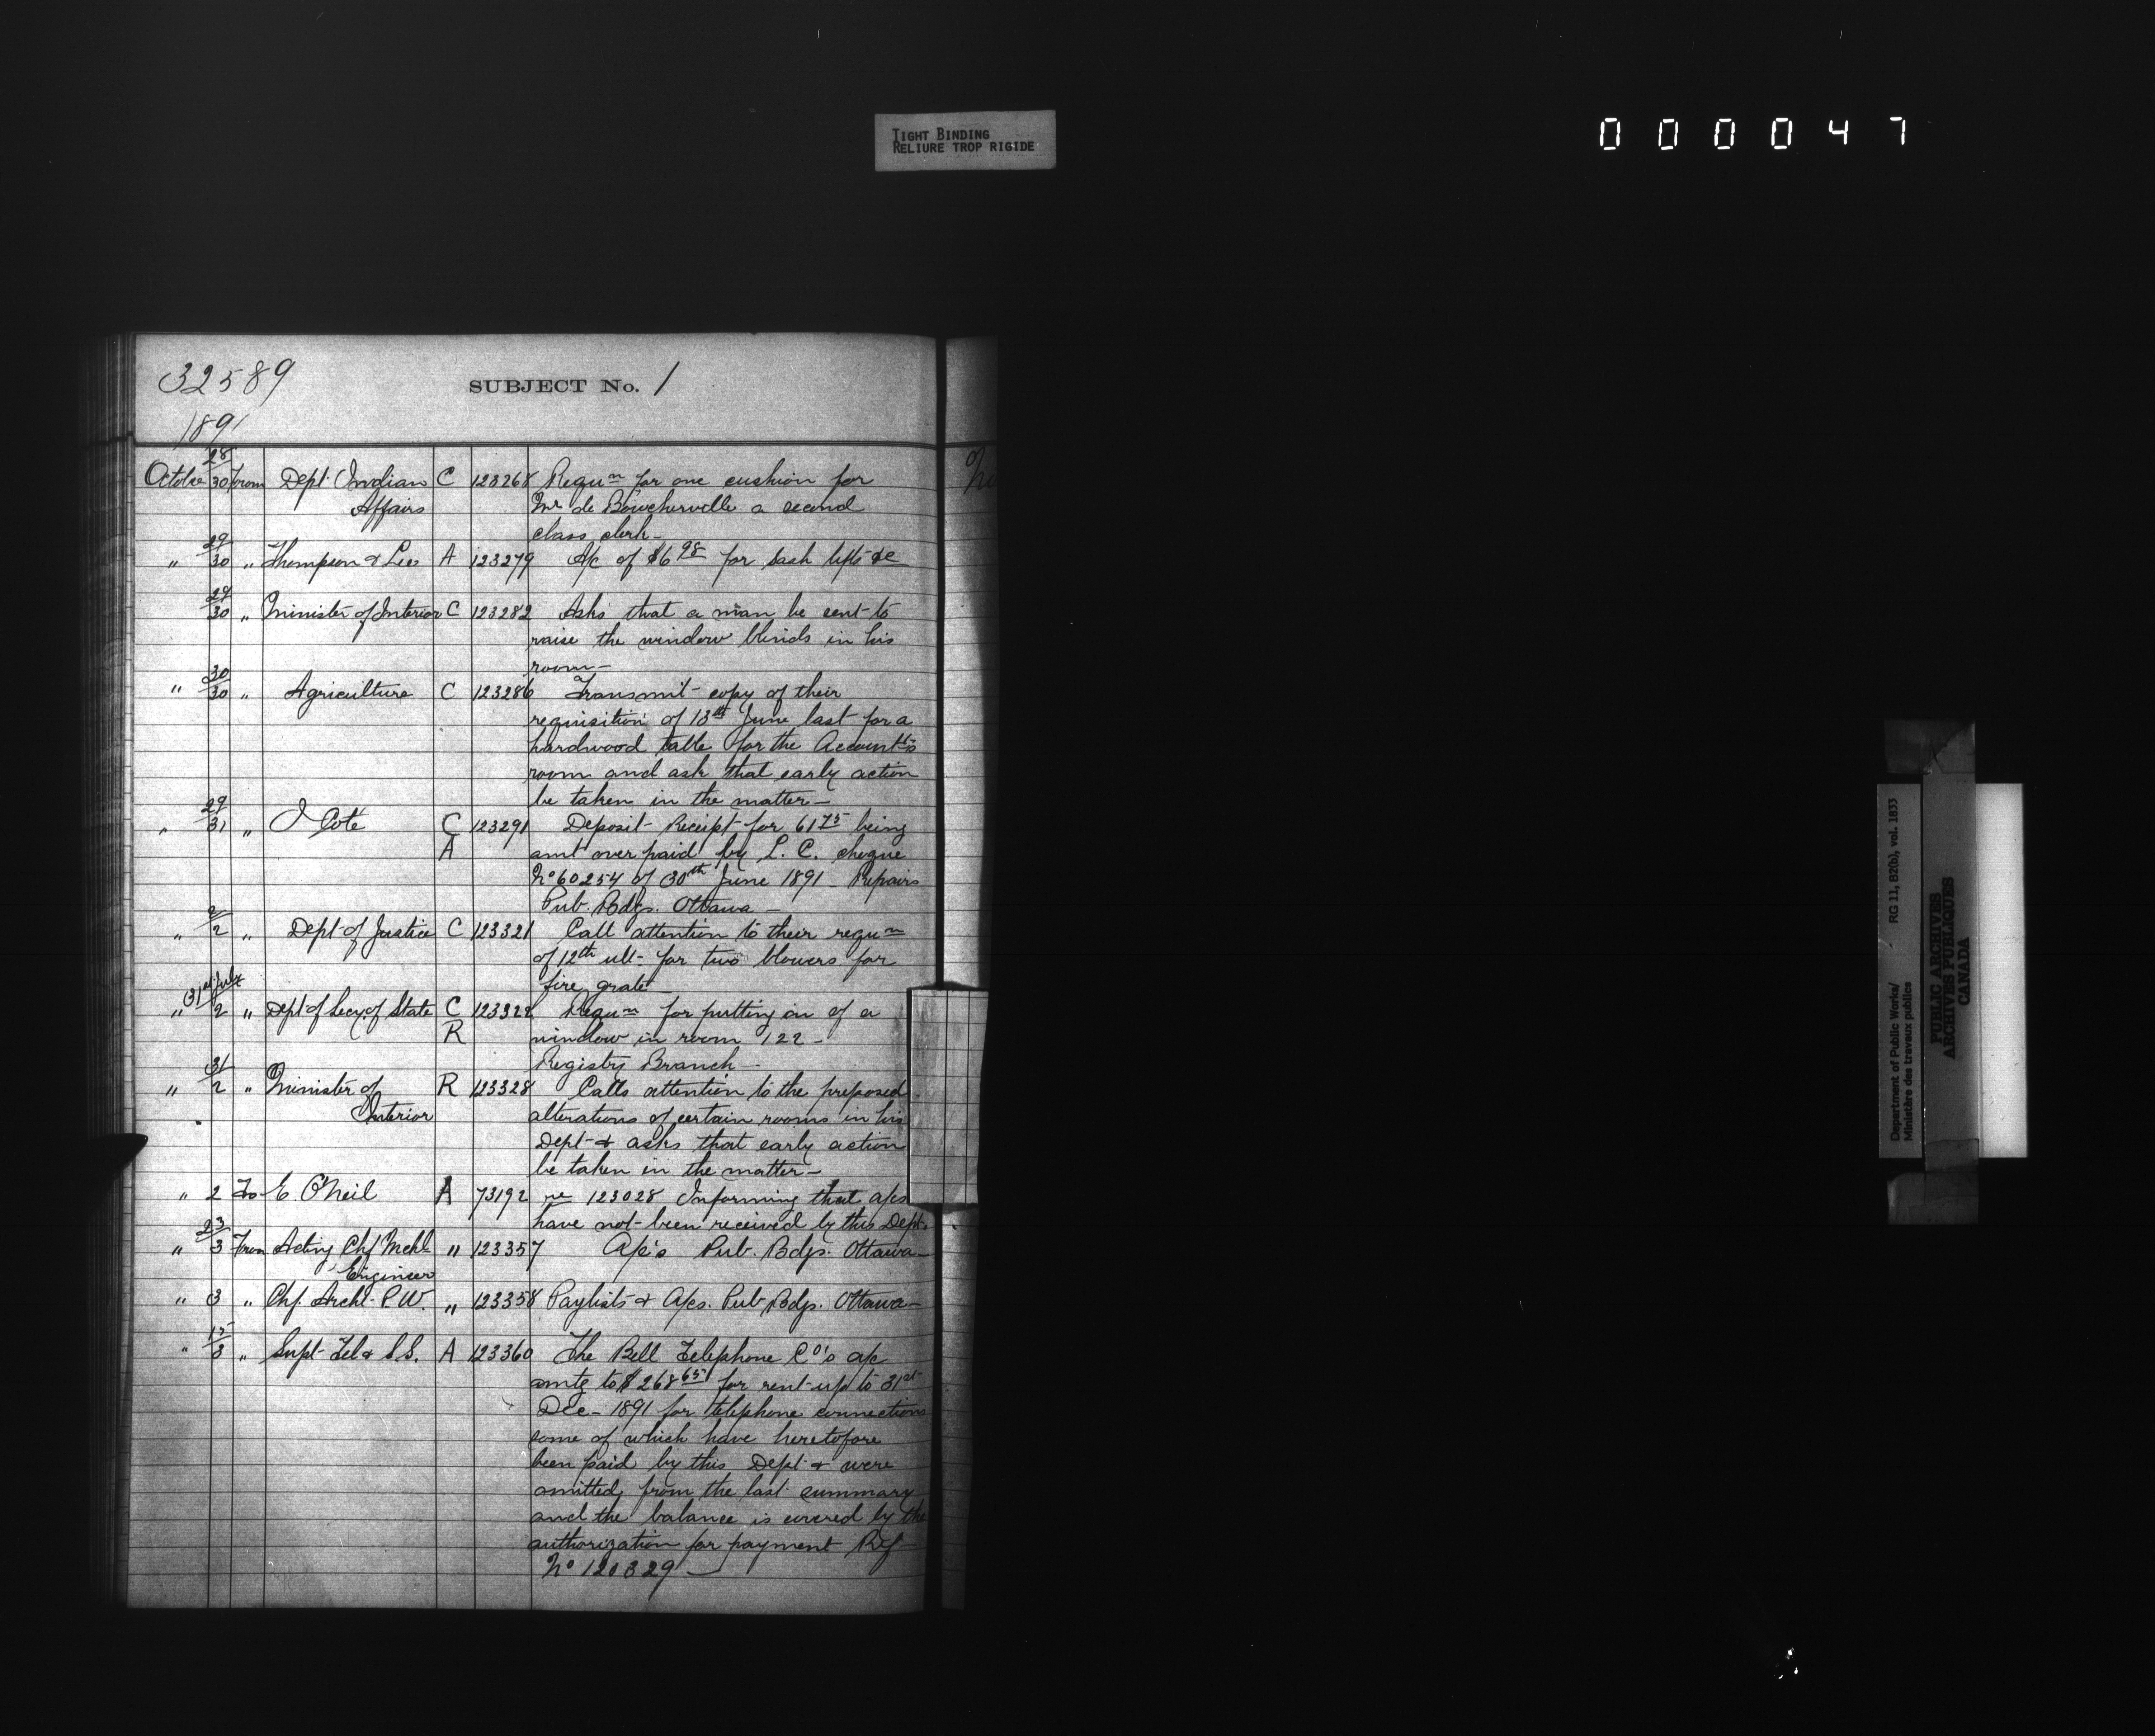 TIGHT BINDING
RELIURE TROP RIGIDE
000047
32589
SUBJECT No. 1
1891
October 28/30 From Dept. Indian C 123268 Requn for one cushion for
Affairs Mr de Boucherville a second
class clerk—
" 29/30 " Thompson & Lees A 123279 A/c of $6 98 for sash lifts &c
29/30 " Minister of Interior C 123282 Asks that a man be sent to
raise the window blinds in his
room—
" 30/30 " Agriculture C 123286 Transmit copy of their
requisition of 13th June last for a
hardwood table for the Accountt's
room and ask that early action
be taken in the matter—
" 29/31 " J Cote C 123291 Deposit Receipt for 61 75 being
A amt over paid by L. C. cheque
No 60254 of 30th June 1891 — Repairs
Pub. Bdgs. Ottawa —
" 2/2 " Dept of Justice C 123321 Call attention to their requn
of 12th ult. for two blowers for
fire grate
" 31st July/2 " Dept of Secy of State C 123322 Requn for putting in of a
R window in room 122 —
Registry Branch —
" 31/2 " Minister of R 123328 Calls attention to the proposed
Interior alterations of certain rooms in his
Dept & asks that early action
be taken in the matter—
" 2 To E. O'Neil A 73192 re 123028 Informing that a/cs
have not been received by this Dept.
" 23/3 From Acting Chf Mchl " 123357 A/c's Pub. Bdgs. Ottawa—
Engineer
" 3 " Chf. Archt. P.W. " 123358 Paylists & A/cs. Pub Bdgs. Ottawa—
" 15/3 " Supt Tel & S.S. A 123360 The Bell Telephone Co's a/c
amtg to $268 65 for rent up to 31st
Dec— 1891 for telephone connections
some of which have heretofore
been paid by this Dept & were
omitted from the last summary
and the balance is covered by the
authorization for payment Ref
No 120329—
Department of Public Works/ RG 11, B2(b), vol. 1833
Ministère des travaux publics
PUBLIC ARCHIVES
ARCHIVES PUBLIQUES
CANADA